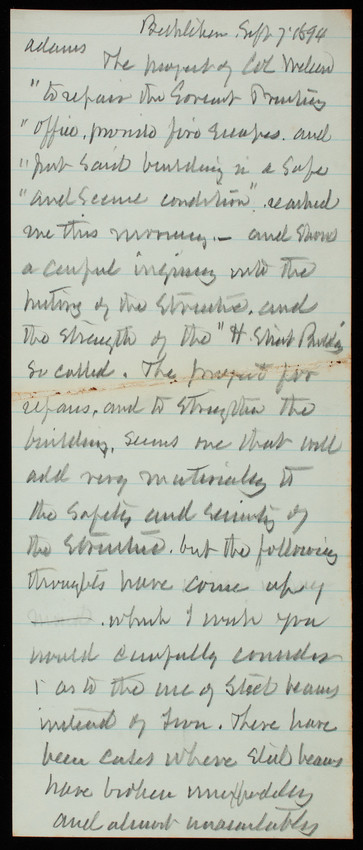 Bethlehem Sept 7' 1894
Adams
The project of Col Wilson
"to repair the Govermt Printing
"Office, provide fire escapes, and
"put said building in a safe
"and secure condition", reached
me this morning, — and shows
a careful inquiry into the
history of the structure, and
the strength of the "H. Street Building
so called. The project for
repairs, and to strengthen the
building, seems one that will
add very materially to
the safety and security of
the structure, but the following
thoughts have come up
which I wish you
would carefully consider
1 as to the use of Steel beams
instead of Iron. There have
been cases where Steel beams
have broken unexpectedly
and almost unaccountably